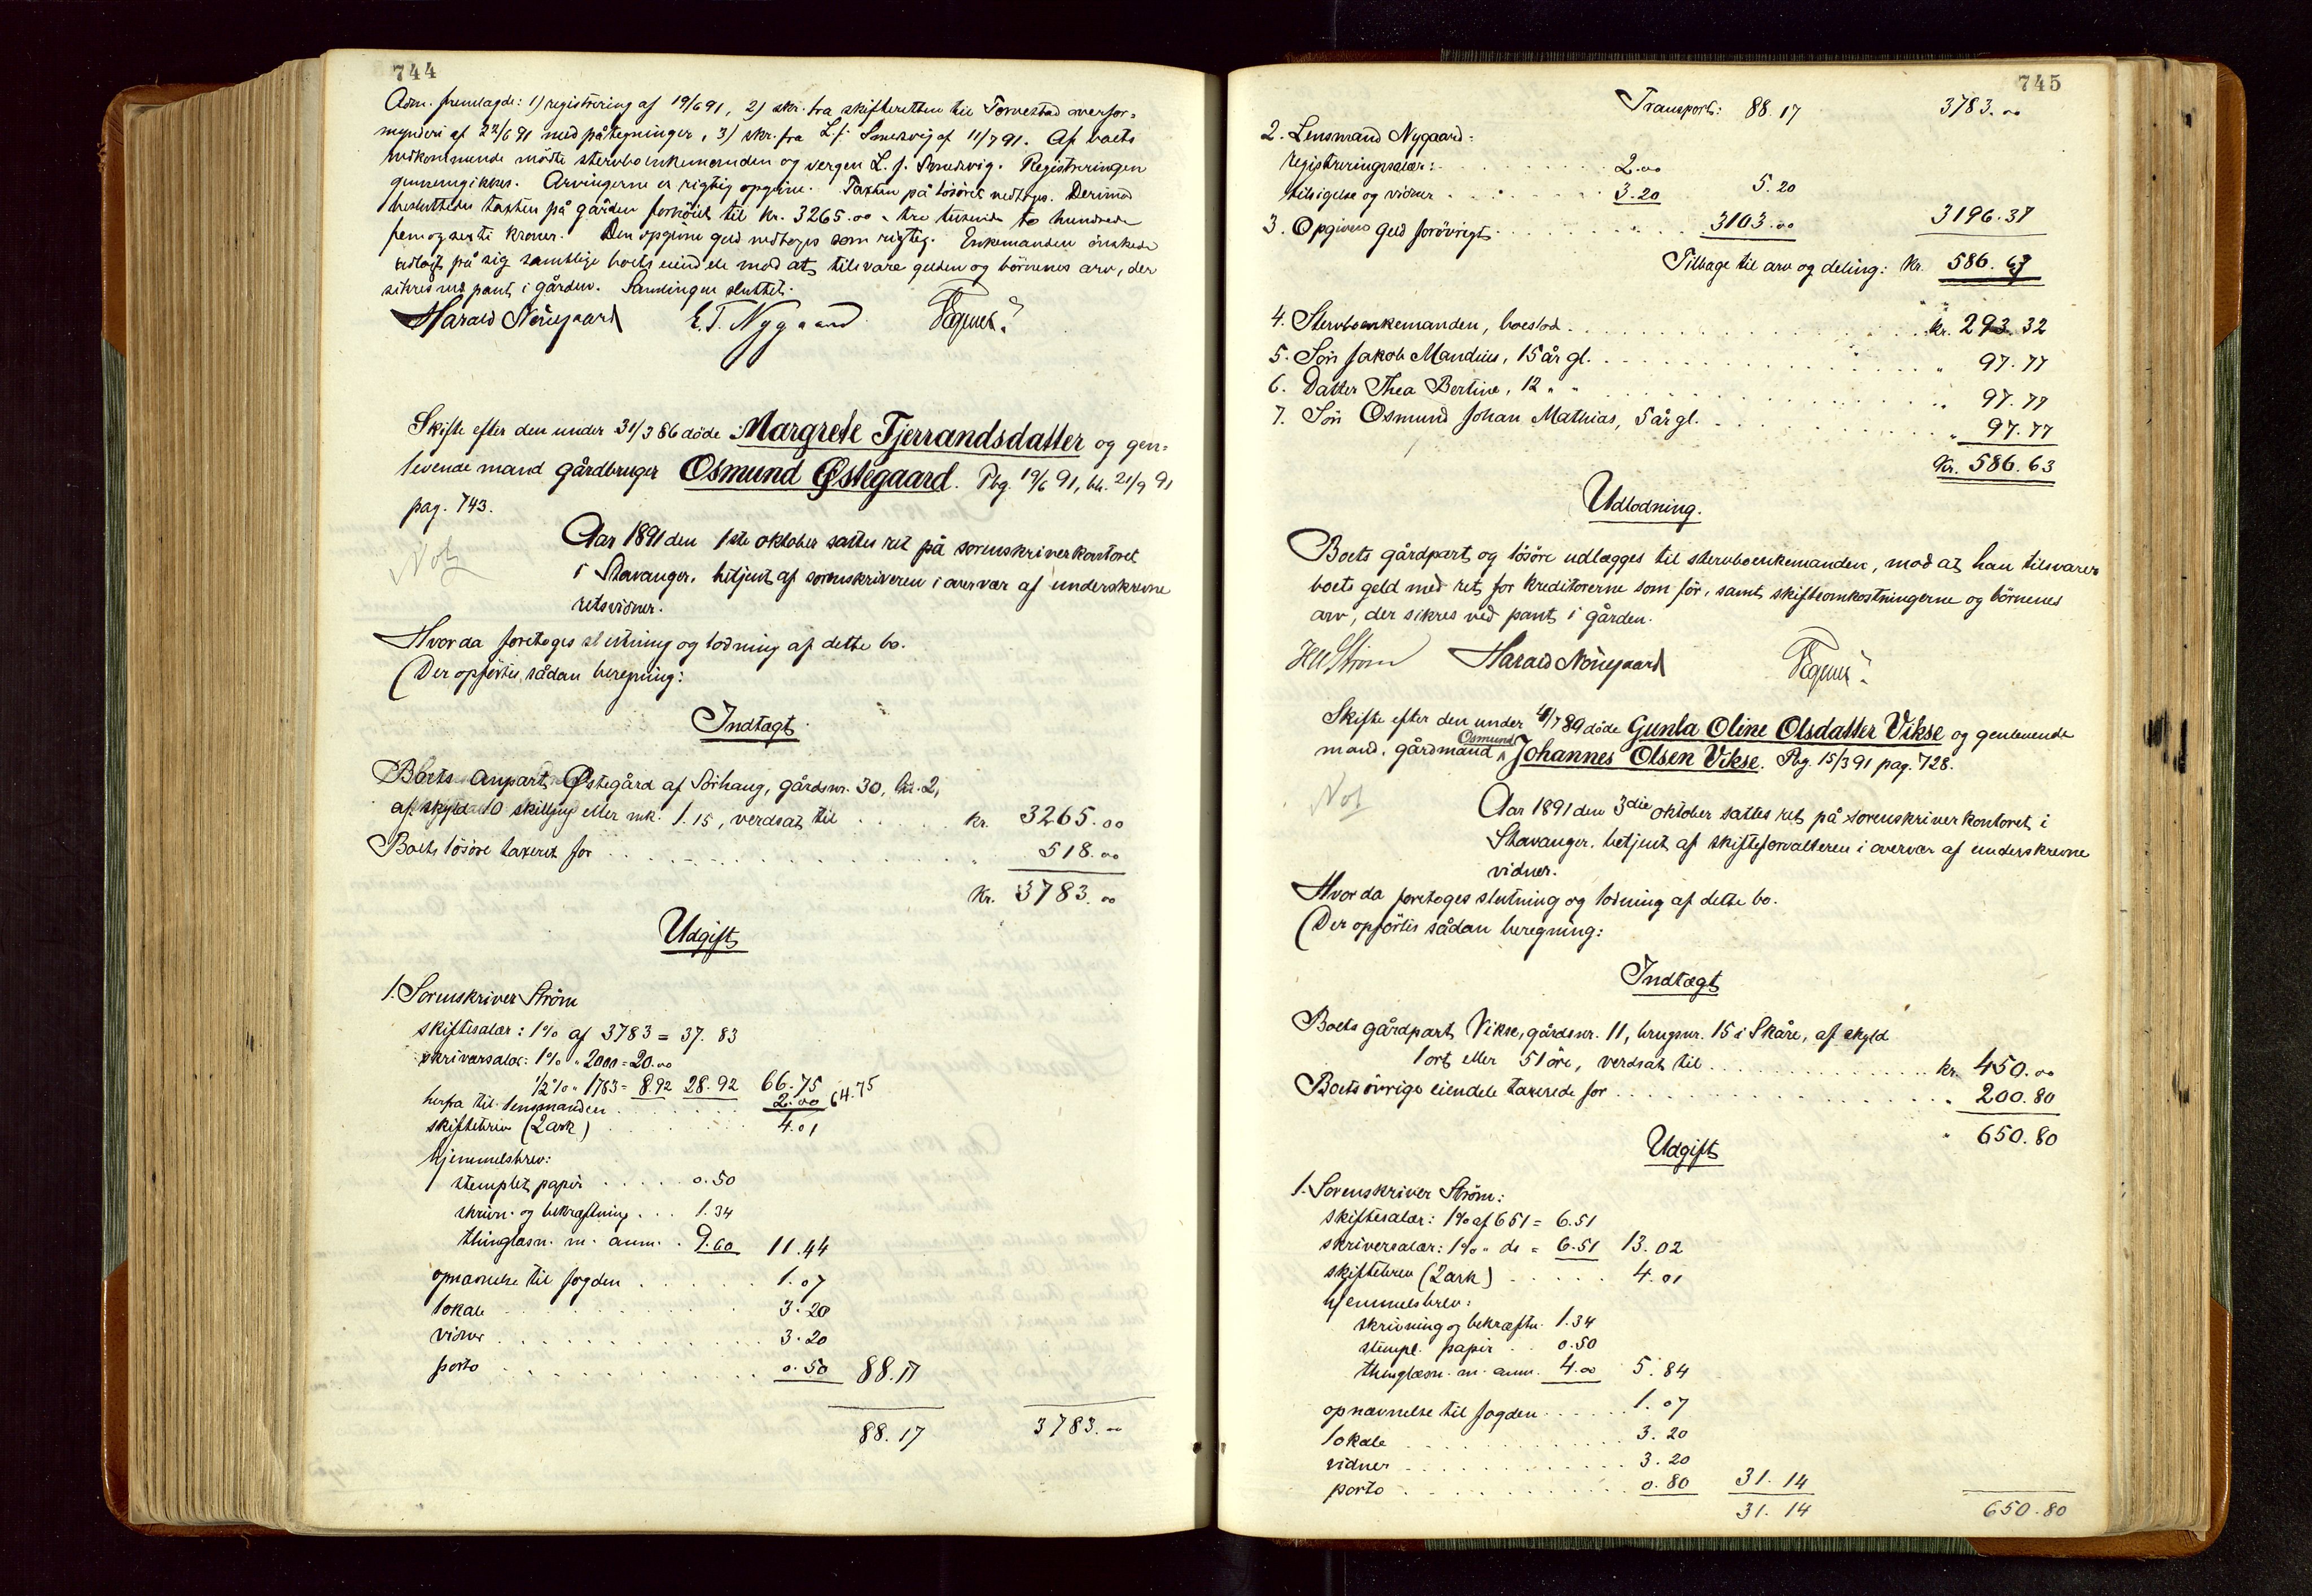 744
Adm. fremlagde: 1) registrering af 19/6 91, 2) skr. fra skifteretten til Torvestad overfor-
mynderi af 22/6 91 med påtegninger, 3) skr. fra L. J. Smedsvig af 11/7 91. Af boets
vedkommende mødte stervboenkemanden og vergen L. J. Smedsvig. Registreringen
gjennemgikkes. Arvingerne er rigtig opgivne. Taxten på løsøret vedtoges. Derimod
besluttedes taxten på gården forhøiet til kr. 3265.00 - tre tusinde to hundrede
femogsexti kroner. Den opgivne gjeld vedtoges som rigtig. Enkemanden ønskede
udlagt på sig samtlige boets eiendele mod at tilsvare gjelden og børnenes arv, der
sikres ved pant i gården. Samlingen sluttet.
Harald Nörregaard E. T. Nygaard
Skifte efter den under 31/3 86 døde Margrete Tjerrandsdatter og gen-
levende mand gårdbruger Osmund Østegaard. Pbg. 19/6 91, bh. 21/9 91
pag. 743.
Not
Aar 1891 den 1ste oktober sattes ret på sorenskriverkontoret
i Stavanger, betjent af sorenskriveren i overvær af underskrevne
retsvidner.
Hvorda foretoges slutning og lodning af dette bo.
Der opførtes sådan beregning:
Indtægt
Boets anpart Østegård af Sørhaug, gårdsnr. 30, br. 2,
af skyld 10 skilling eller mk. 1.15, verdsat til . . . . . kr. 3265.00
Boets løsøre taxeret for . . . . . . . . . . " 518.00
kr. 3783.00
Udgift
1. Sorenskriver Strøm
skiftesalær: 1% af 3783 = 37.83
skriversalær: 1% " 2000 = 20.00
1/2% " 1783 = 8.92 28.92 66.75
herfra til lensmanden . . . . . 2.00 64.75
skiftebrev (2 ark) . . . . . 4.01
hjemmelsbrev:
stemplet papir . . . . . 0.50
skrivn. og bekræftning . . . 1.34
thinglæsn. m. anm. . 9.60 11.44
opnævnelse til fogden . . . . . 1.07
lokale . . . . . 3.20
vidner . . . . . 3.20
porto . . . . . 0.50 88.17
88.17 3783.00
745
Transport: 88.17 3783.00
2. Lensmand Nygaard:
registreringssalær: . . . . . 2.00
tilsigelse og vidner . . . . . 3.20 5.20
3. Opgiven gjeld forøvrigt . . . . . 3103.00 3196.37
Tilbage til arv og deling: Kr. 586.63
4. Stervboenkemanden, boeslod . . . . . kr. 293.32
5. Søn Jakob Mandius, 15 år gl. . . . . . " 97.77
6. Datter Thea Bertine, 12 " " . . . . . " 97.77
7. Søn Osmund Johan Mathias, 5 år gl. . . . . . " 97.77
Kr. 586.63
Udlodning.
Boets gårdpart og løsøre udlægges til stervboenkemanden, mod at han tilsvarer
boets gjeld med ret for kreditorerne som før, samt skifteomkostningerne og børnenes
arv, der sikres ved pant i gården.
Strøm Harald Nörregaard
Skifte efter den under /7 89 døde Gunla Oline Olsdatter Vikse og genlevende
mand, gårdmand Osmund Johannes Olsen Vikse. Pbg. 15/3 91 pag. 728.
Not
Aar 1891 den 3die oktober sattes ret på sorenskriverkontoret i
Stavanger, betjent af skifteforvalteren i overvær af underskrevne
vidner.
Hvorda foretoges slutning og lodning af dette bo.
Der opførtes sådan beregning:
Indtægt
Boets gårdpart Vikse, gårdsnr. 11, brugsnr. 15 i Skåre, af skyld
1 ort eller 51 øre, verdsat til . . . . . kr. 450.00
Boets øvrige eiendele taxerede for . . . . . " 200.80
" 650.80
Udgift
1. Sorenskriver Strøm:
skiftesalær: 1% af 651 = 6.51
skriversalær: 1% " do = 6.51 13.02
skiftebrev (2 ark) . . . . . 4.01
hjemmelsbrev:
skrivning og bekræftn. 1.34
stempl. papir . . 0.50
thinglæsn. m. anm. 4.00 5.84
opnævnelse til fogden . . . . . 1.07
lokale . . . . . 3.20
vidner . . . . . 3.20
porto . . . . . 0.80 31.14
31.14 650.80